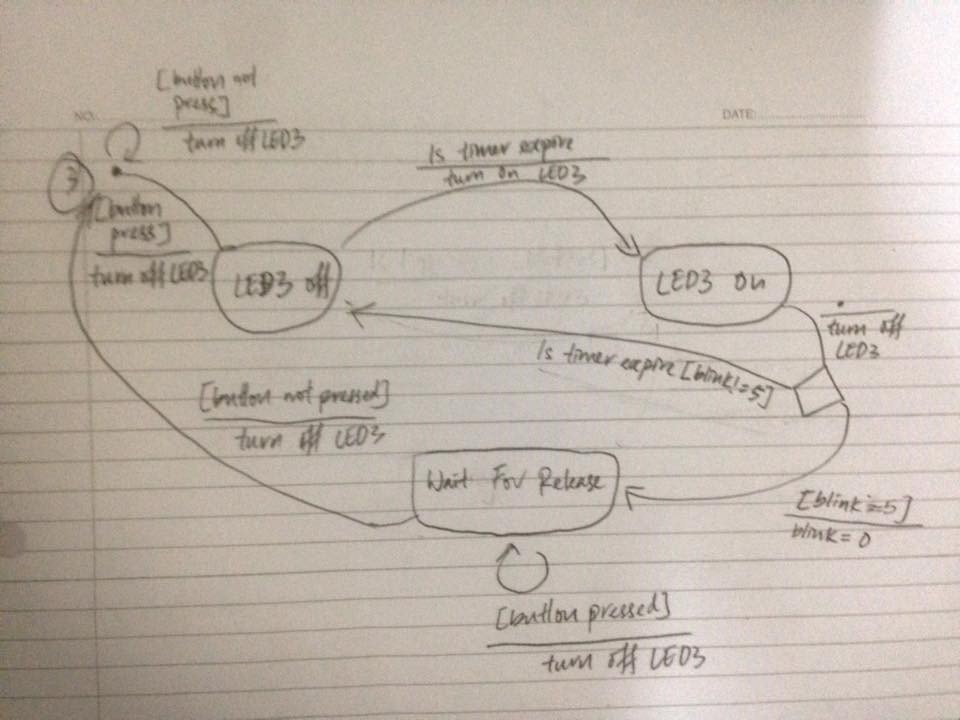 NO.
DATE:
[button not
press]
turn off LED3
3
[button
press]
turn off LED3
Is timer expire
turn on LED3
LED3 off
LED3 on
turn off
LED3
Is timer expire [blink!=5]
[button not pressed]
turn off LED3
Wait For Release
[blink==5]
blink=0
[button pressed]
turn off LED3